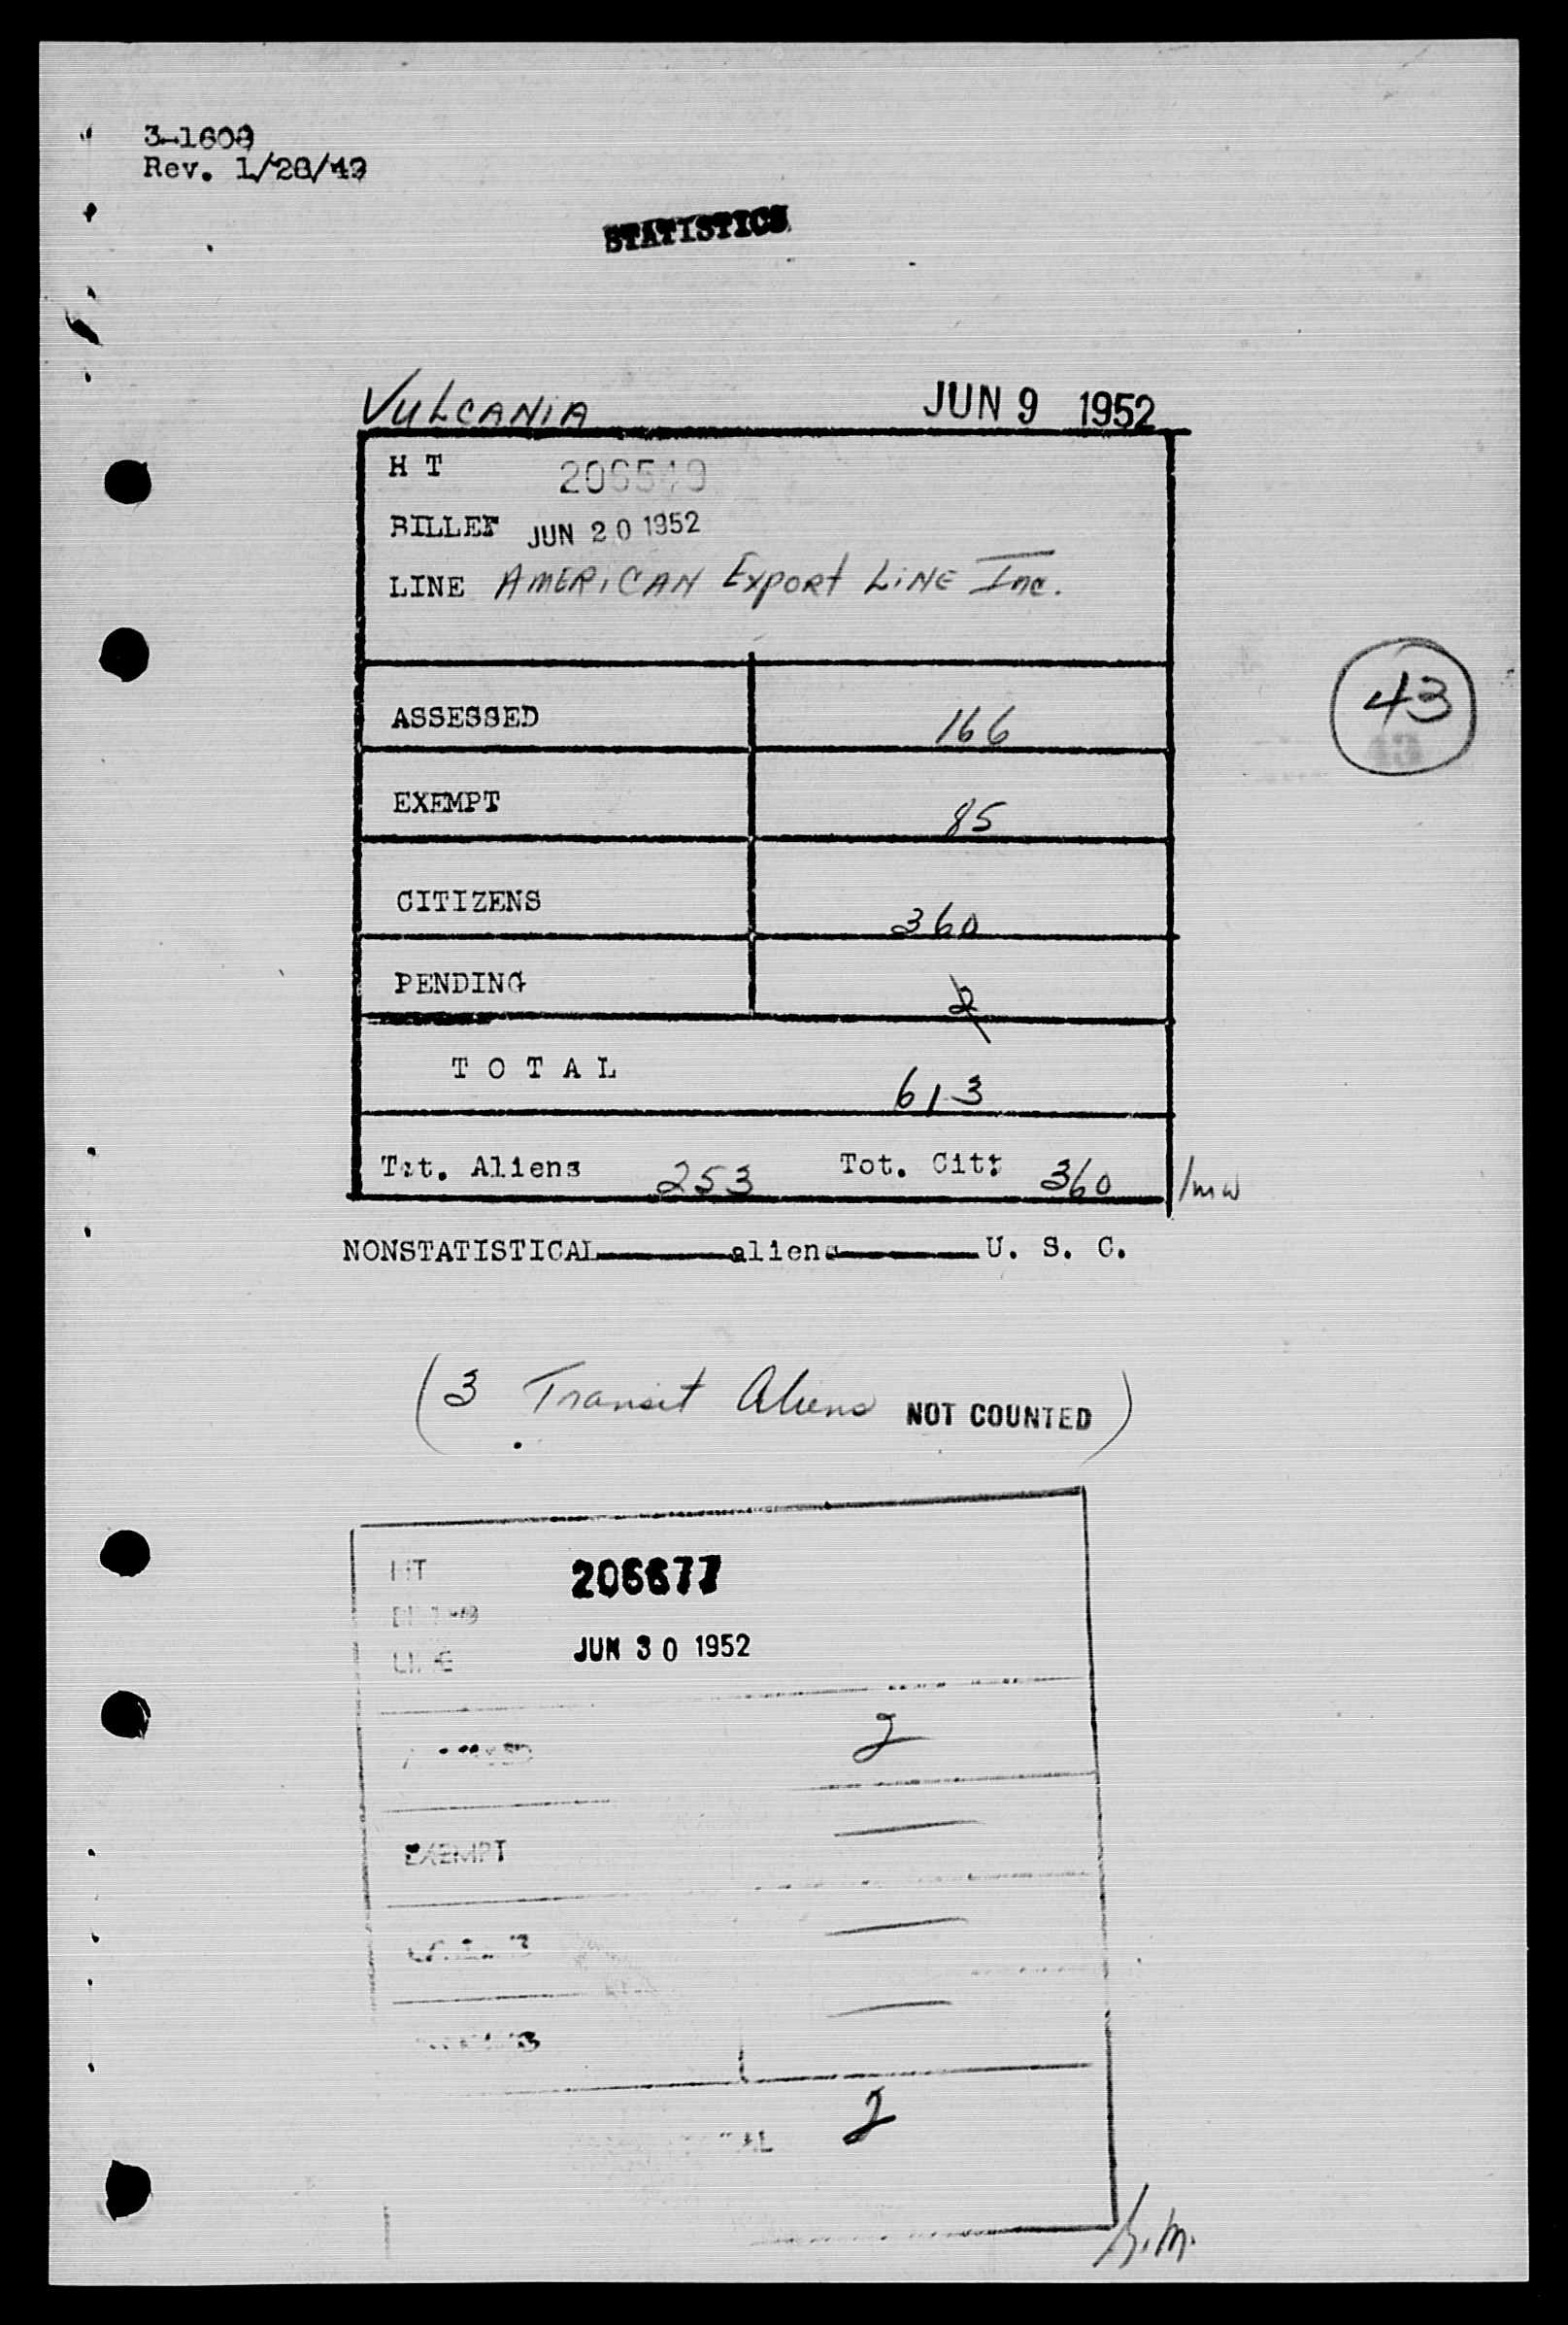 3-1609
Rev. 1/28/49
STATISTICS
VULCANIA JUN 9 1952
H T 206549
BILLED JUN 20 1952
LINE AMERICAN Export LINE Inc.
43
ASSESSED 166
EXEMPT 85
CITIZENS 360
PENDING 2
T O T A L 613
Tot. Aliens 253 Tot. Cit: 360 /mw
NONSTATISTICAL aliens U. S. C.
(3 Transit Aliens NOT COUNTED)
HT 206677
JUN 30 1952
LINE
2
EXEMPT
2